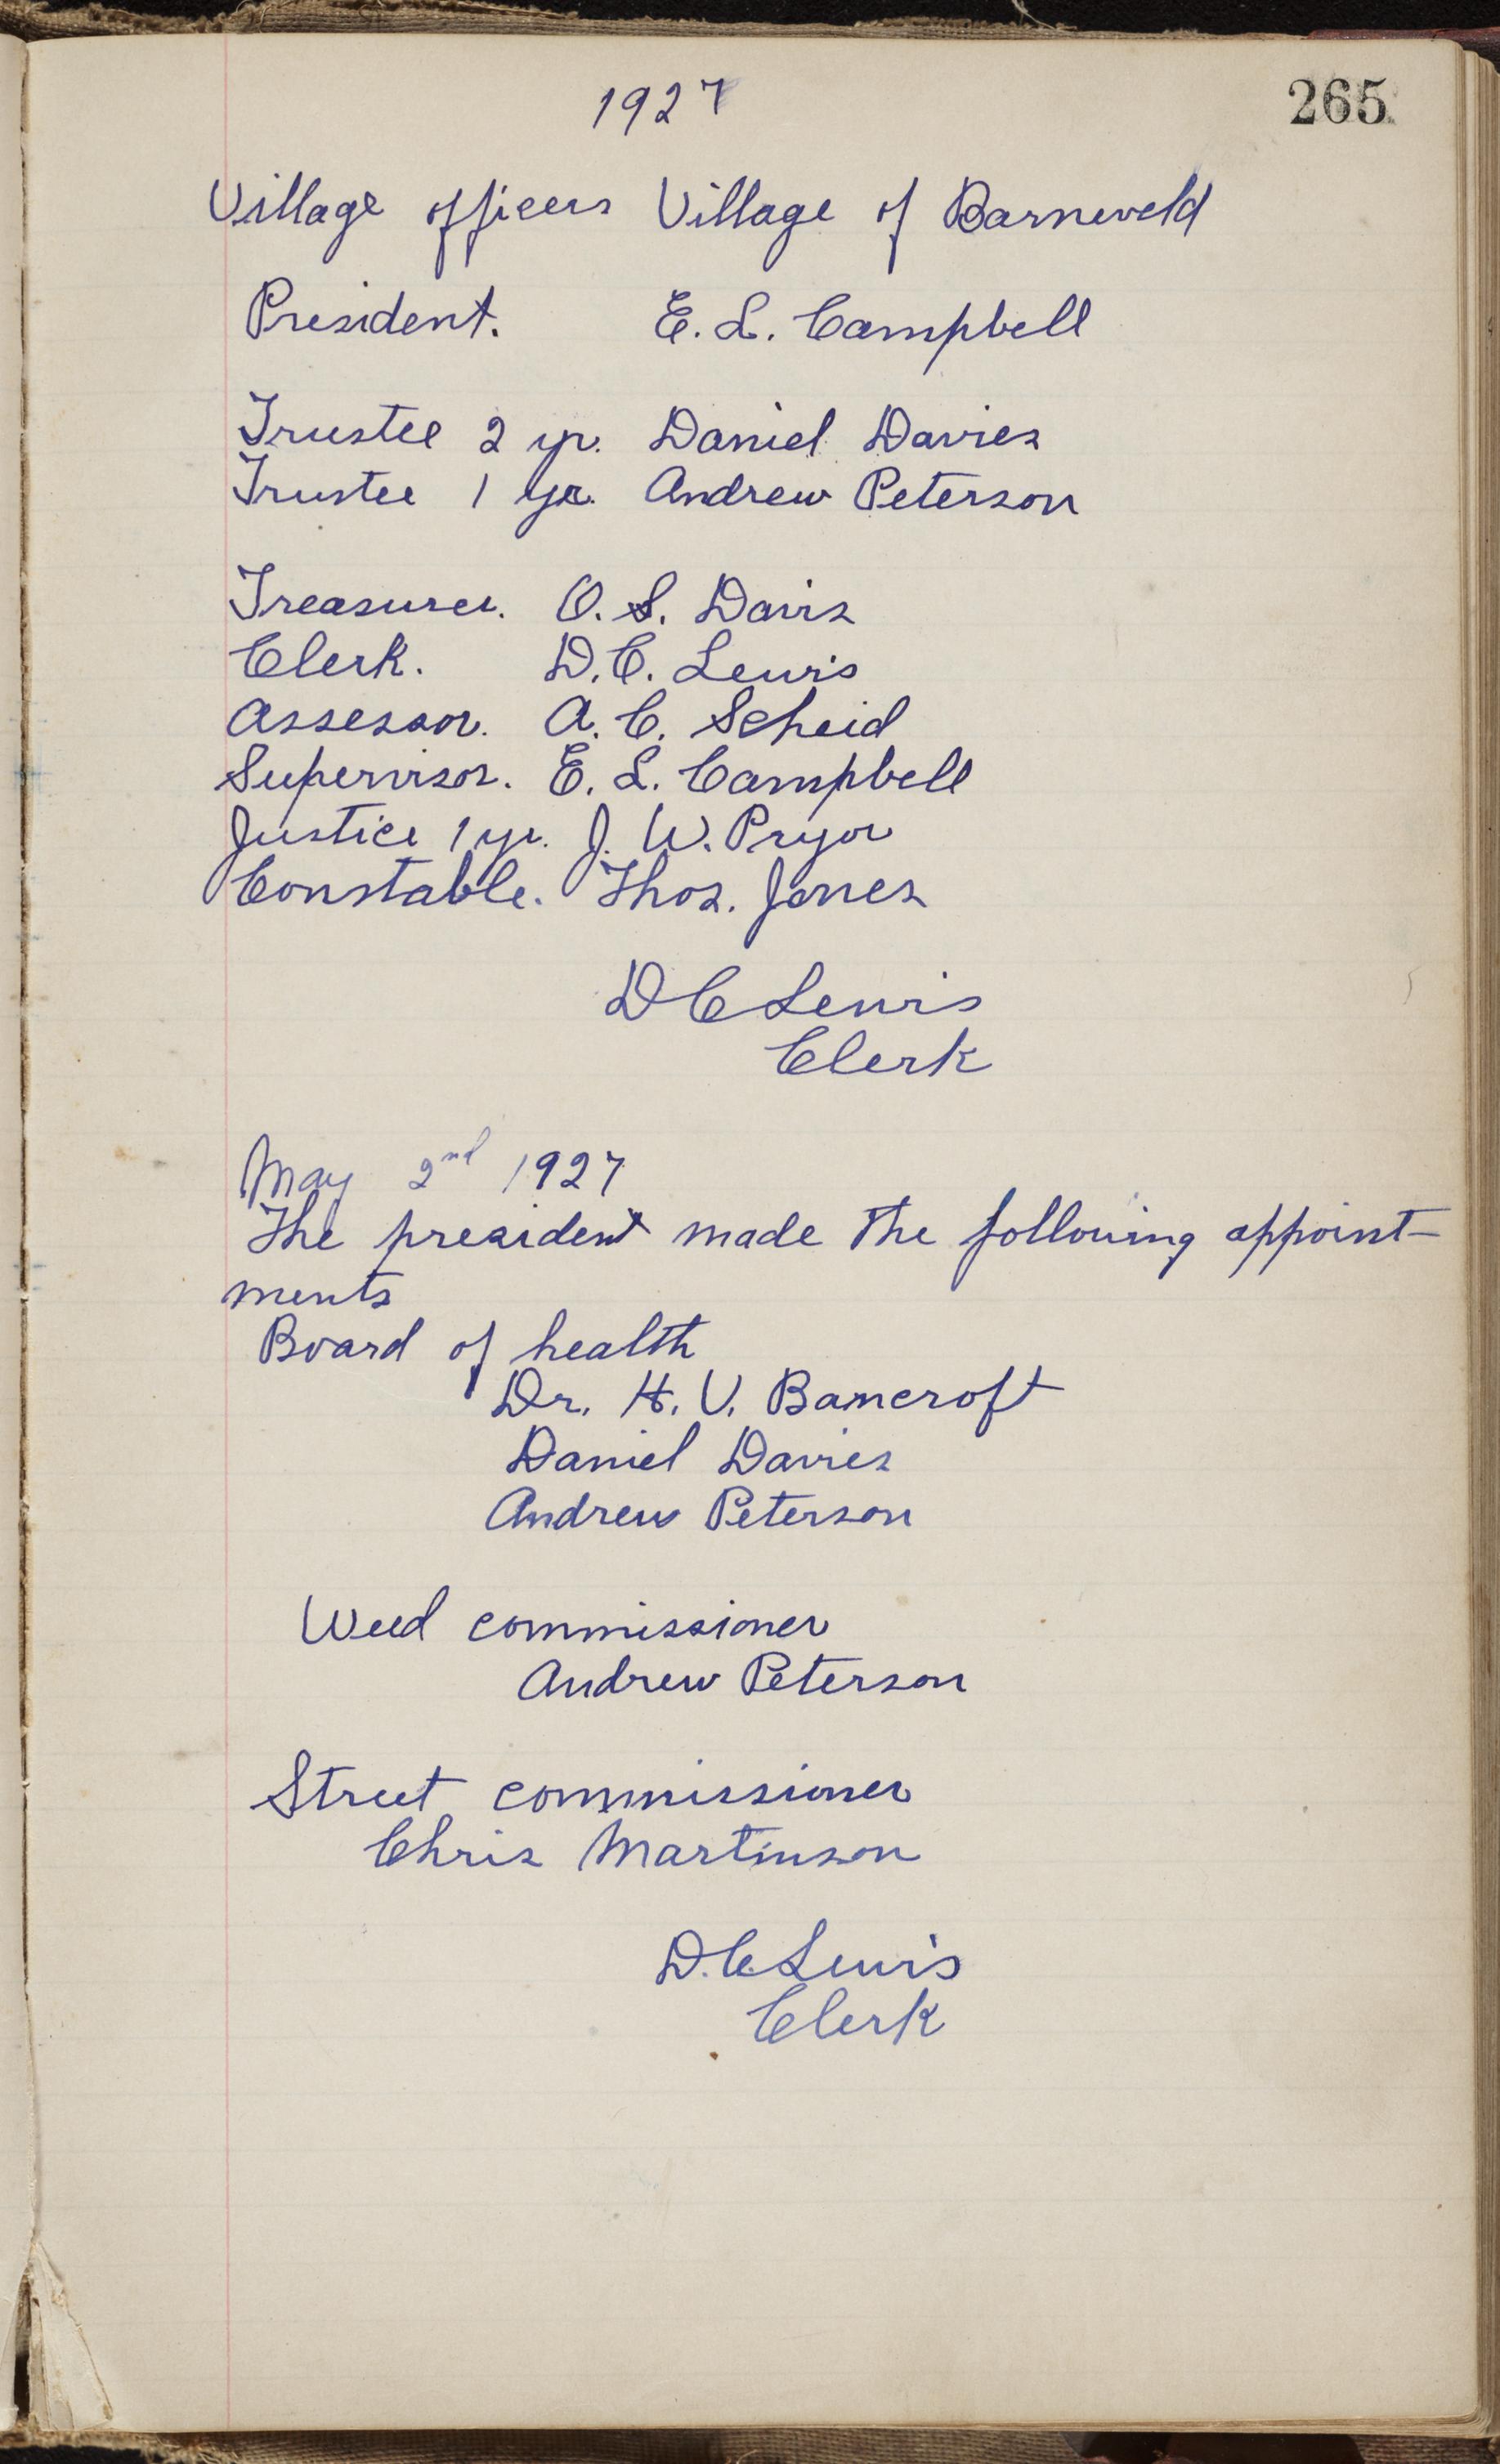 1927
265
Village officers Village of Barneveld
President. E. L. Campbell
Trustee 2 yr. Daniel Davies
Trustee 1 yr. Andrew Peterson
Treasurer. O. S. Davis
Clerk. D. C. Lewis
Assessor. A. C. Scheid
Supervisor. E. L. Campbell
Justice 1 yr. J. W. Pryor
Constable. Thos. Jones
D C Lewis
Clerk
May 2nd 1927
The president made the following appoint-
ments
Board of health
Dr. H. V. Bancroft
Daniel Davies
Andrew Peterson
Weed commissioner
Andrew Peterson
Street commissioner
Chris Martinson
D. C. Lewis
Clerk